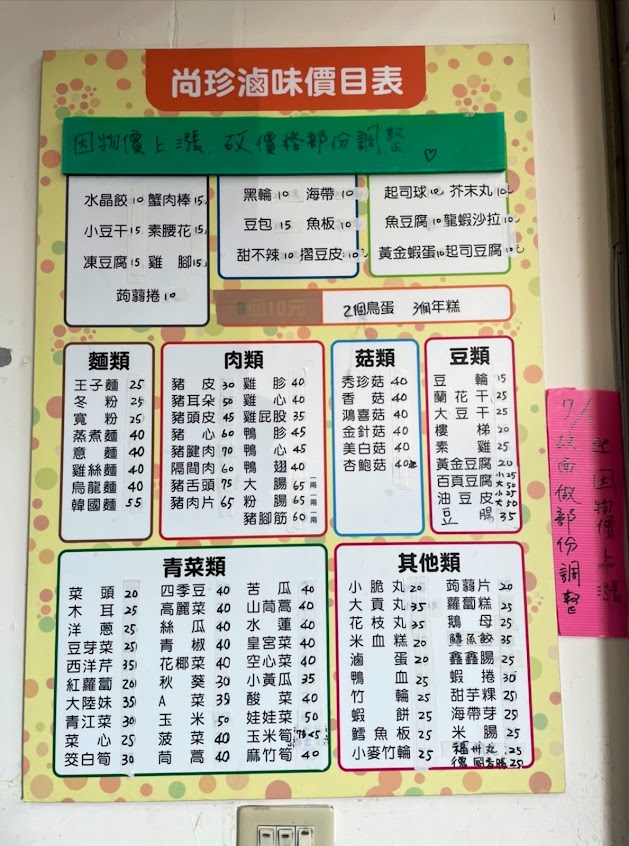 尚珍滷味價目表
因物價上漲 砍價格部份調整 ♡
水晶餃10 蟹肉棒15
小豆干15 素腰花15
凍豆腐15 雞腳15
蒟蒻捲10
黑輪10 海帶10
豆包15 魚板10
甜不辣10 摺豆皮10
起司球10 芥末丸10
魚豆腐10 龍蝦沙拉10
黃金蝦蛋10 起司豆腐10
個10元 2個鳥蛋 3個年糕
麵類
王子麵 25
冬粉 25
寬粉 25
蒸煮麵 40
意麵 40
雞絲麵 40
烏龍麵 40
韓國麵 55
肉類
豬皮30 雞胗40
豬耳朵50 雞心40
豬頭皮45 雞屁股35
豬心60 鴨胗45
豬腱肉70 鴨心45
隔間肉60 鴨翅40
豬舌頭75 大腸65 一兩
豬肉片65 粉腸65 一兩
豬腳筋60 一兩
菇類
秀珍菇40
香菇40
鴻喜菇40
金針菇40
美白菇40
杏鮑菇40
豆類
豆輪15
蘭花干25
大豆干25
樓梯20
素雞25
黃金豆腐20
百頁豆腐 小25 大50
油豆皮 小25 大50
豆腸35
青菜類
菜頭20 四季豆40 苦瓜40
木耳25 高麗菜40 山茼蒿40
洋蔥25 絲瓜40 水蓮40
豆芽菜25 青椒40 皇宮菜40
西洋芹35 花椰菜40 空心菜40
紅蘿蔔20 秋葵30 小黃瓜35
大陸妹35 A菜39 酸菜40
青江菜30 玉米50 娃娃菜50
菜心25 菠菜40 玉米筍45
筊白筍30 茼蒿40 麻竹筍40
其他類
小脆丸20 蒟蒻片20
大貢丸35 蘿蔔糕25
花枝丸35 鵝母25
米血糕20 鱈魚餃35
滷蛋20 鑫鑫腸25
鴨血25 蝦捲30
竹輪25 甜芋粿25
蝦餅25 海帶芽25
鱈魚板25 米腸25
小麥竹輪25 福州丸25
德國香腸25
7/1起因物價上漲
店面做部份調整